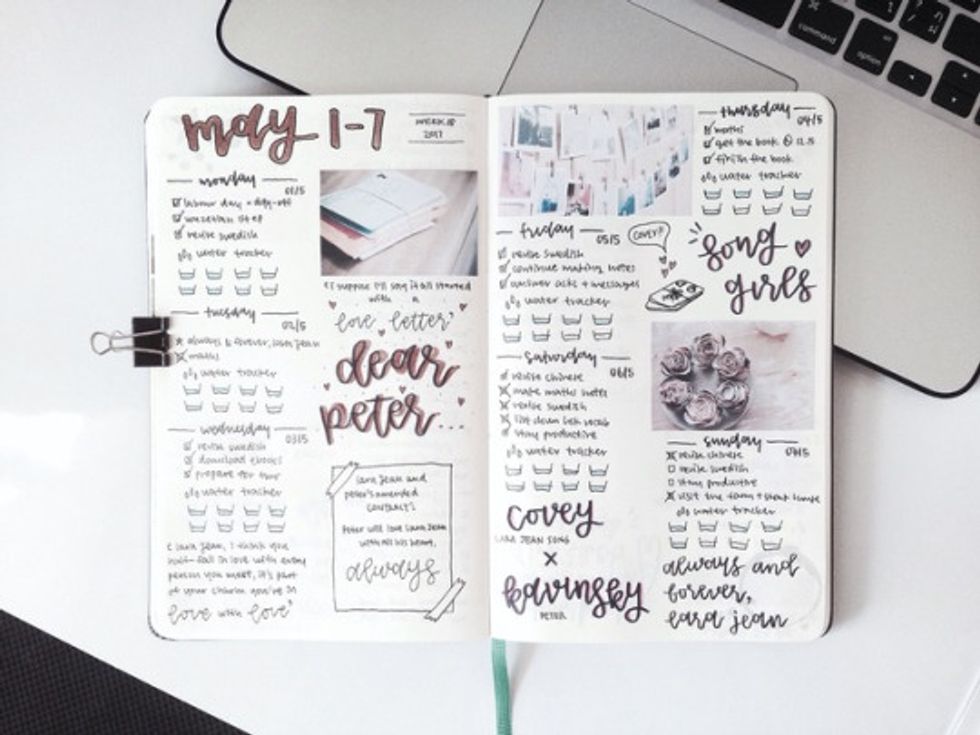 command
option
may 1-7
WEEK 18
2017
monday
01/5
labour day = day-off
revise swedish
water tracker
tuesday
02/5
always & forever, lara jean
maths
water tracker
wednesday
03/5
revise swedish
download ebooks
prepare for
water tracker
" lara jean, i think you
half-fall in love with every
person you meet, it's part
of your charm you're in
love with love"
"I suppose i'll say it all started
with a
love letter"
dear
peter...
lara jean and
peter's amended
contract:
Peter will love lara jean
with all his heart.
always
thursday
04/5
maths
get the book @
finish the book
water tracker
friday
05/5
revise swedish
continue making notes
answer asks + messages
water tracker
COVEY!
song
girls
saturday
06/5
revise chinese
make maths notes
revise swedish
list down vocab
stay productive
water tracker
covey
LARA JEAN SONG
x
kavinsky
PETER
sunday
07/5
revise chinese
revise swedish
stay productive
visit the farm +
water tracker
always and
forever,
lara jean